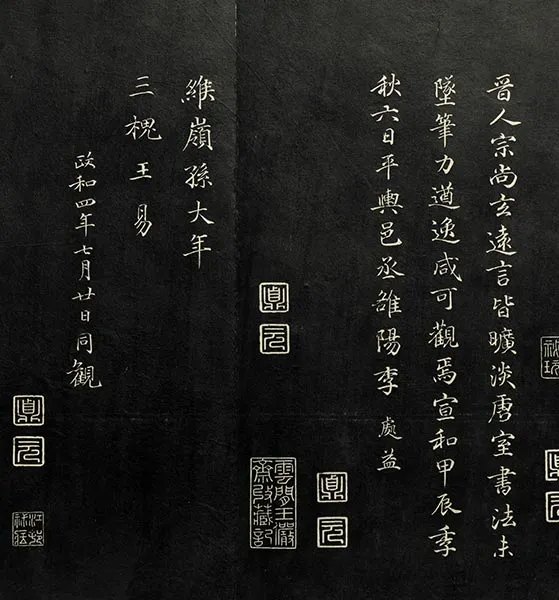 晉人宗尚玄遠言皆曠淡唐室書法未
墜筆力遒逸咸可觀焉宣和甲辰季
秋六日平輿邑丞雒陽李處益
維嶺孫大年
三槐王易
政和四年七月廿日同觀
鼎
元
鼎
元
鼎
元